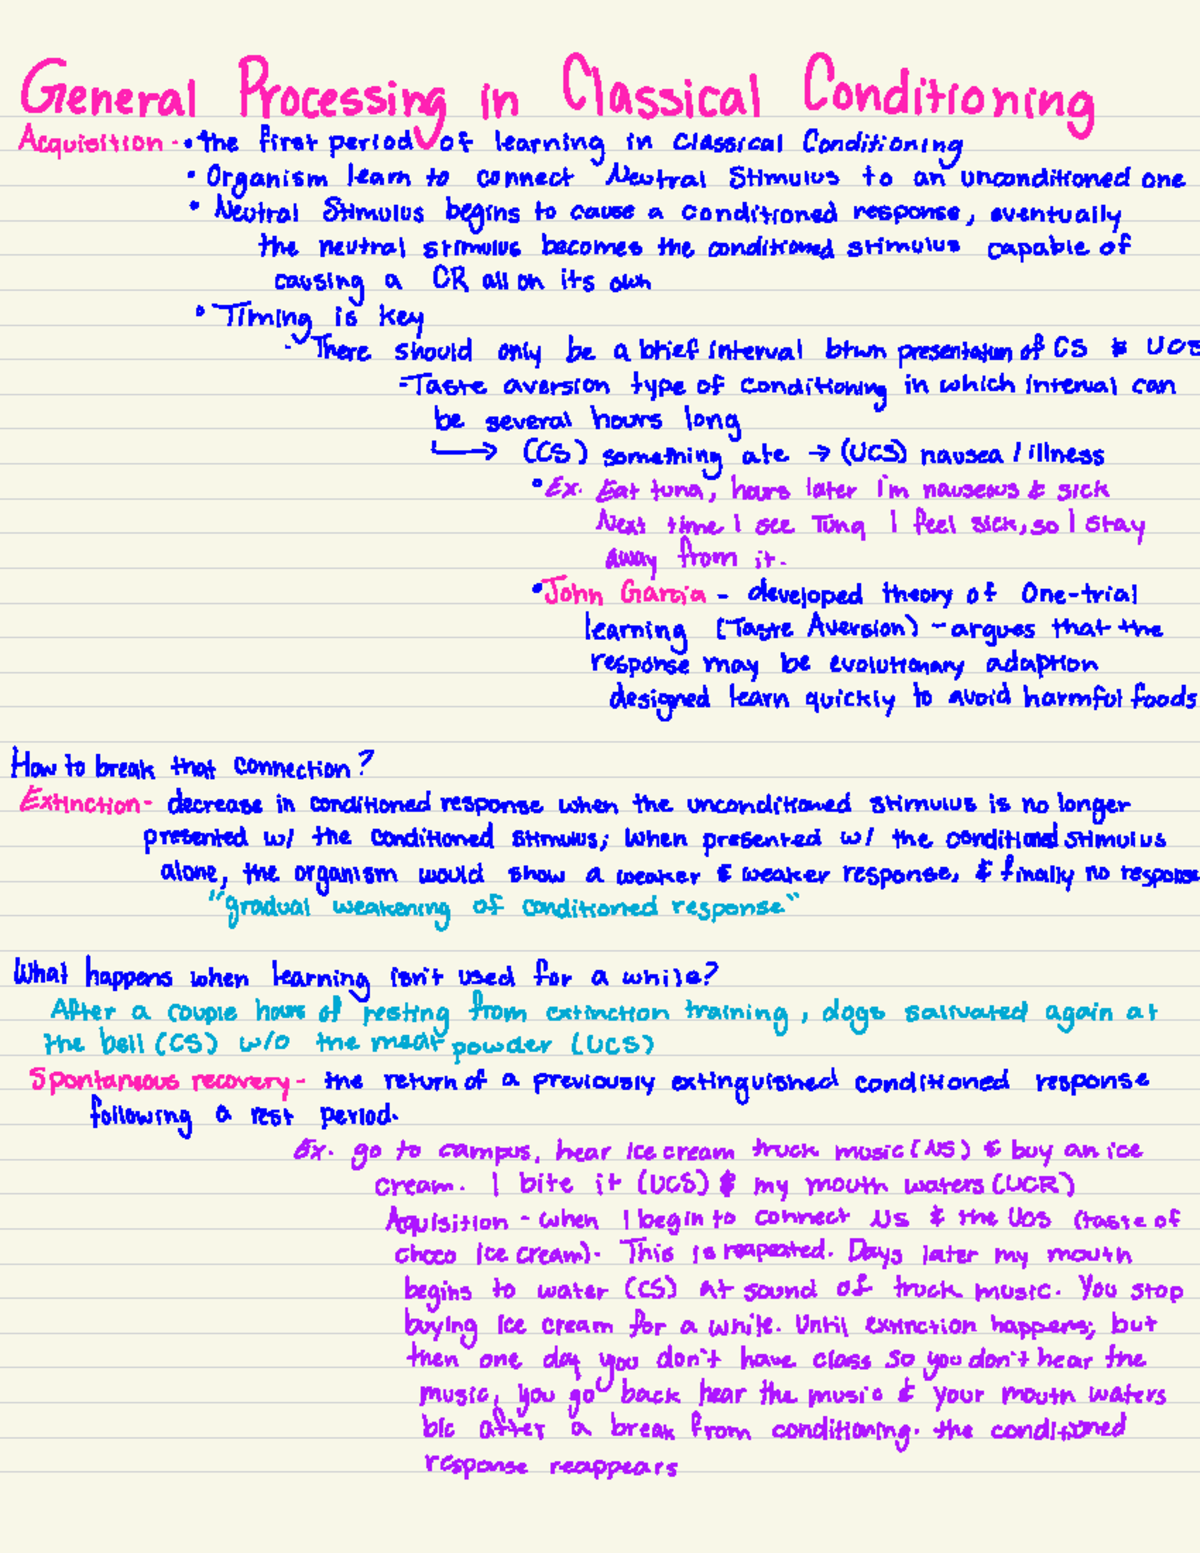 General Processing in Classical Conditioning
Acquisition - • the first period of learning in Classical Conditioning
• Organism learn to connect Neutral Stimulus to an unconditioned one
• Neutral Stimulus begins to cause a conditioned response, eventually
the neutral stimulus becomes the conditioned stimulus capable of
causing a CR all on its own
• Timing is key
- There should only be a brief interval btwn presentation of CS & UCS
- Taste aversion type of conditioning in which interval can
be several hours long
→ (CS) something ate → (UCS) nausea / illness
• Ex. Eat tuna, hours later I'm nauseous & sick
Next time I see Tuna I feel sick, so I stay
away from it.
• John Garcia - developed theory of One-trial
learning (Taste Aversion) - argues that the
response may be evolutionary adaption
designed learn quickly to avoid harmful foods
How to break that connection?
Extinction - decrease in conditioned response when the unconditioned stimulus is no longer
presented w/ the conditioned stimulus; When presented w/ the conditioned stimulus
alone, the organism would show a weaker & weaker response, & finally no response
"gradual weakening of conditioned response"
What happens when learning isn't used for a while?
After a couple hours of resting from extinction training, dogs salivated again at
the bell (CS) w/o the meat powder (UCS)
Spontaneous recovery - the return of a previously extinguished conditioned response
following a rest period.
Ex. go to campus, hear ice cream truck music (NS) & buy an ice
cream. I bite it (UCS) & my mouth waters (UCR)
Aquisition - when I begin to connect NS & the UCS (taste of
choco ice cream). This is reapeated. Days later my mouth
begins to water (CS) at sound of truck music. You stop
buying ice cream for a while. Until extinction happens; but
then one day you don't have class so you don't hear the
music, you go back hear the music & your mouth waters
b/c after a break from conditioning. the conditioned
response reappears